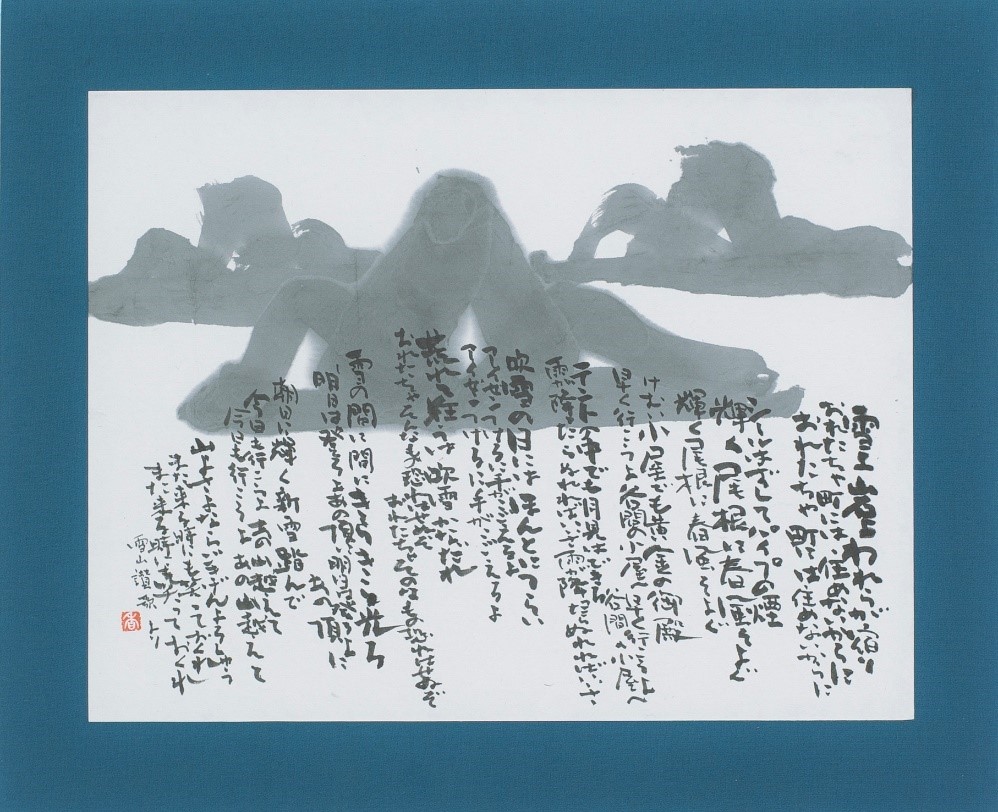 雪よ岩よわれらが宿り
おれたちゃ町には住めないからに
おれたちゃ町には住めないからに
シールはずしてパイプの煙
輝く尾根に春風そよぐ
輝く尾根に春風そよぐ
けむい小屋でも黄金の御殿
早く行こうよ谷間の小屋へ
早く行こうよ谷間の小屋へ
テントの中でも月見はできる
雨が降ったらぬれればいいさ
雨が降ったらぬれればいいさ
吹雪の日にはほんとにつらい
アイゼンつけるに手がこごえるよ
アイゼンつけるに手がこごえるよ
荒れ狂うは吹雪かなだれ
おれたちゃそんなもの恐れはせぬぞ
おれたちゃそんなもの恐れはせぬぞ
雪の間に間にきらきらと光る
明日は登ろよあの頂に
明日は登ろよあの頂に
朝日に輝く新雪踏んで
今日も行こうよあの山越えて
今日も行こうよあの山越えて
山よさよならごきげんよろしゅう
また来る時にも笑っておくれ
また来る時にも笑っておくれ
雪山讃歌より
香